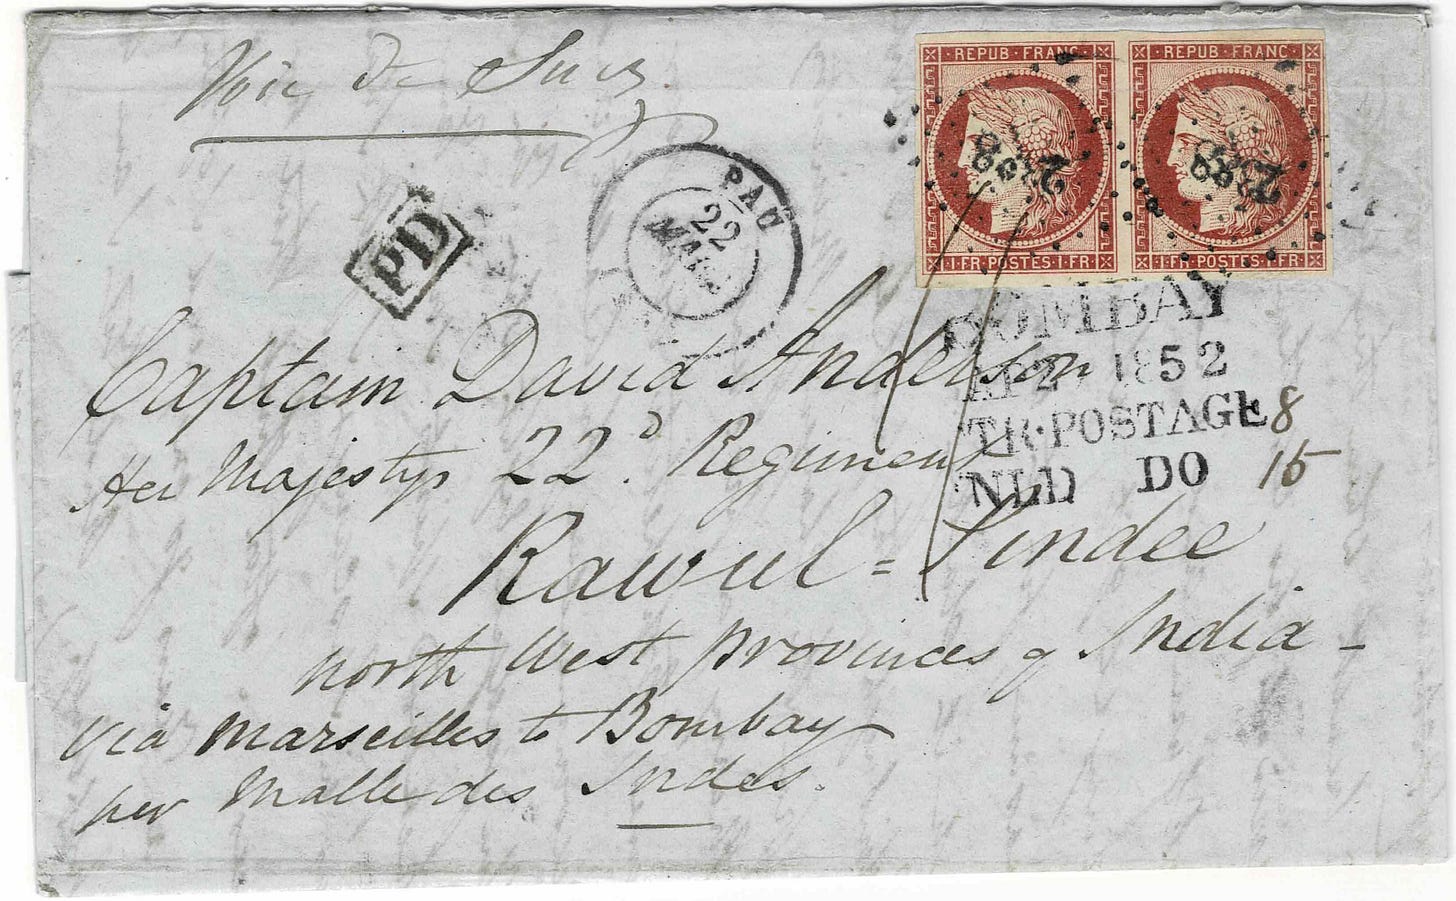 Voie de Suez
REPUB·FRANC
REPUB·FRANC
2388
2388
1·FR·POSTES·1·FR
1·FR·POSTES·1·FR
PD
PAU
22
MARS
BOMBAY
AP 2 1852
TR·POSTAGE 8
NLD DO 15
Captain David Anderson
Her Majestys 22d. Regiment
Rawul=Pindee
North West provinces of India -
via Marseilles to Bombay
per Malle des Indes.